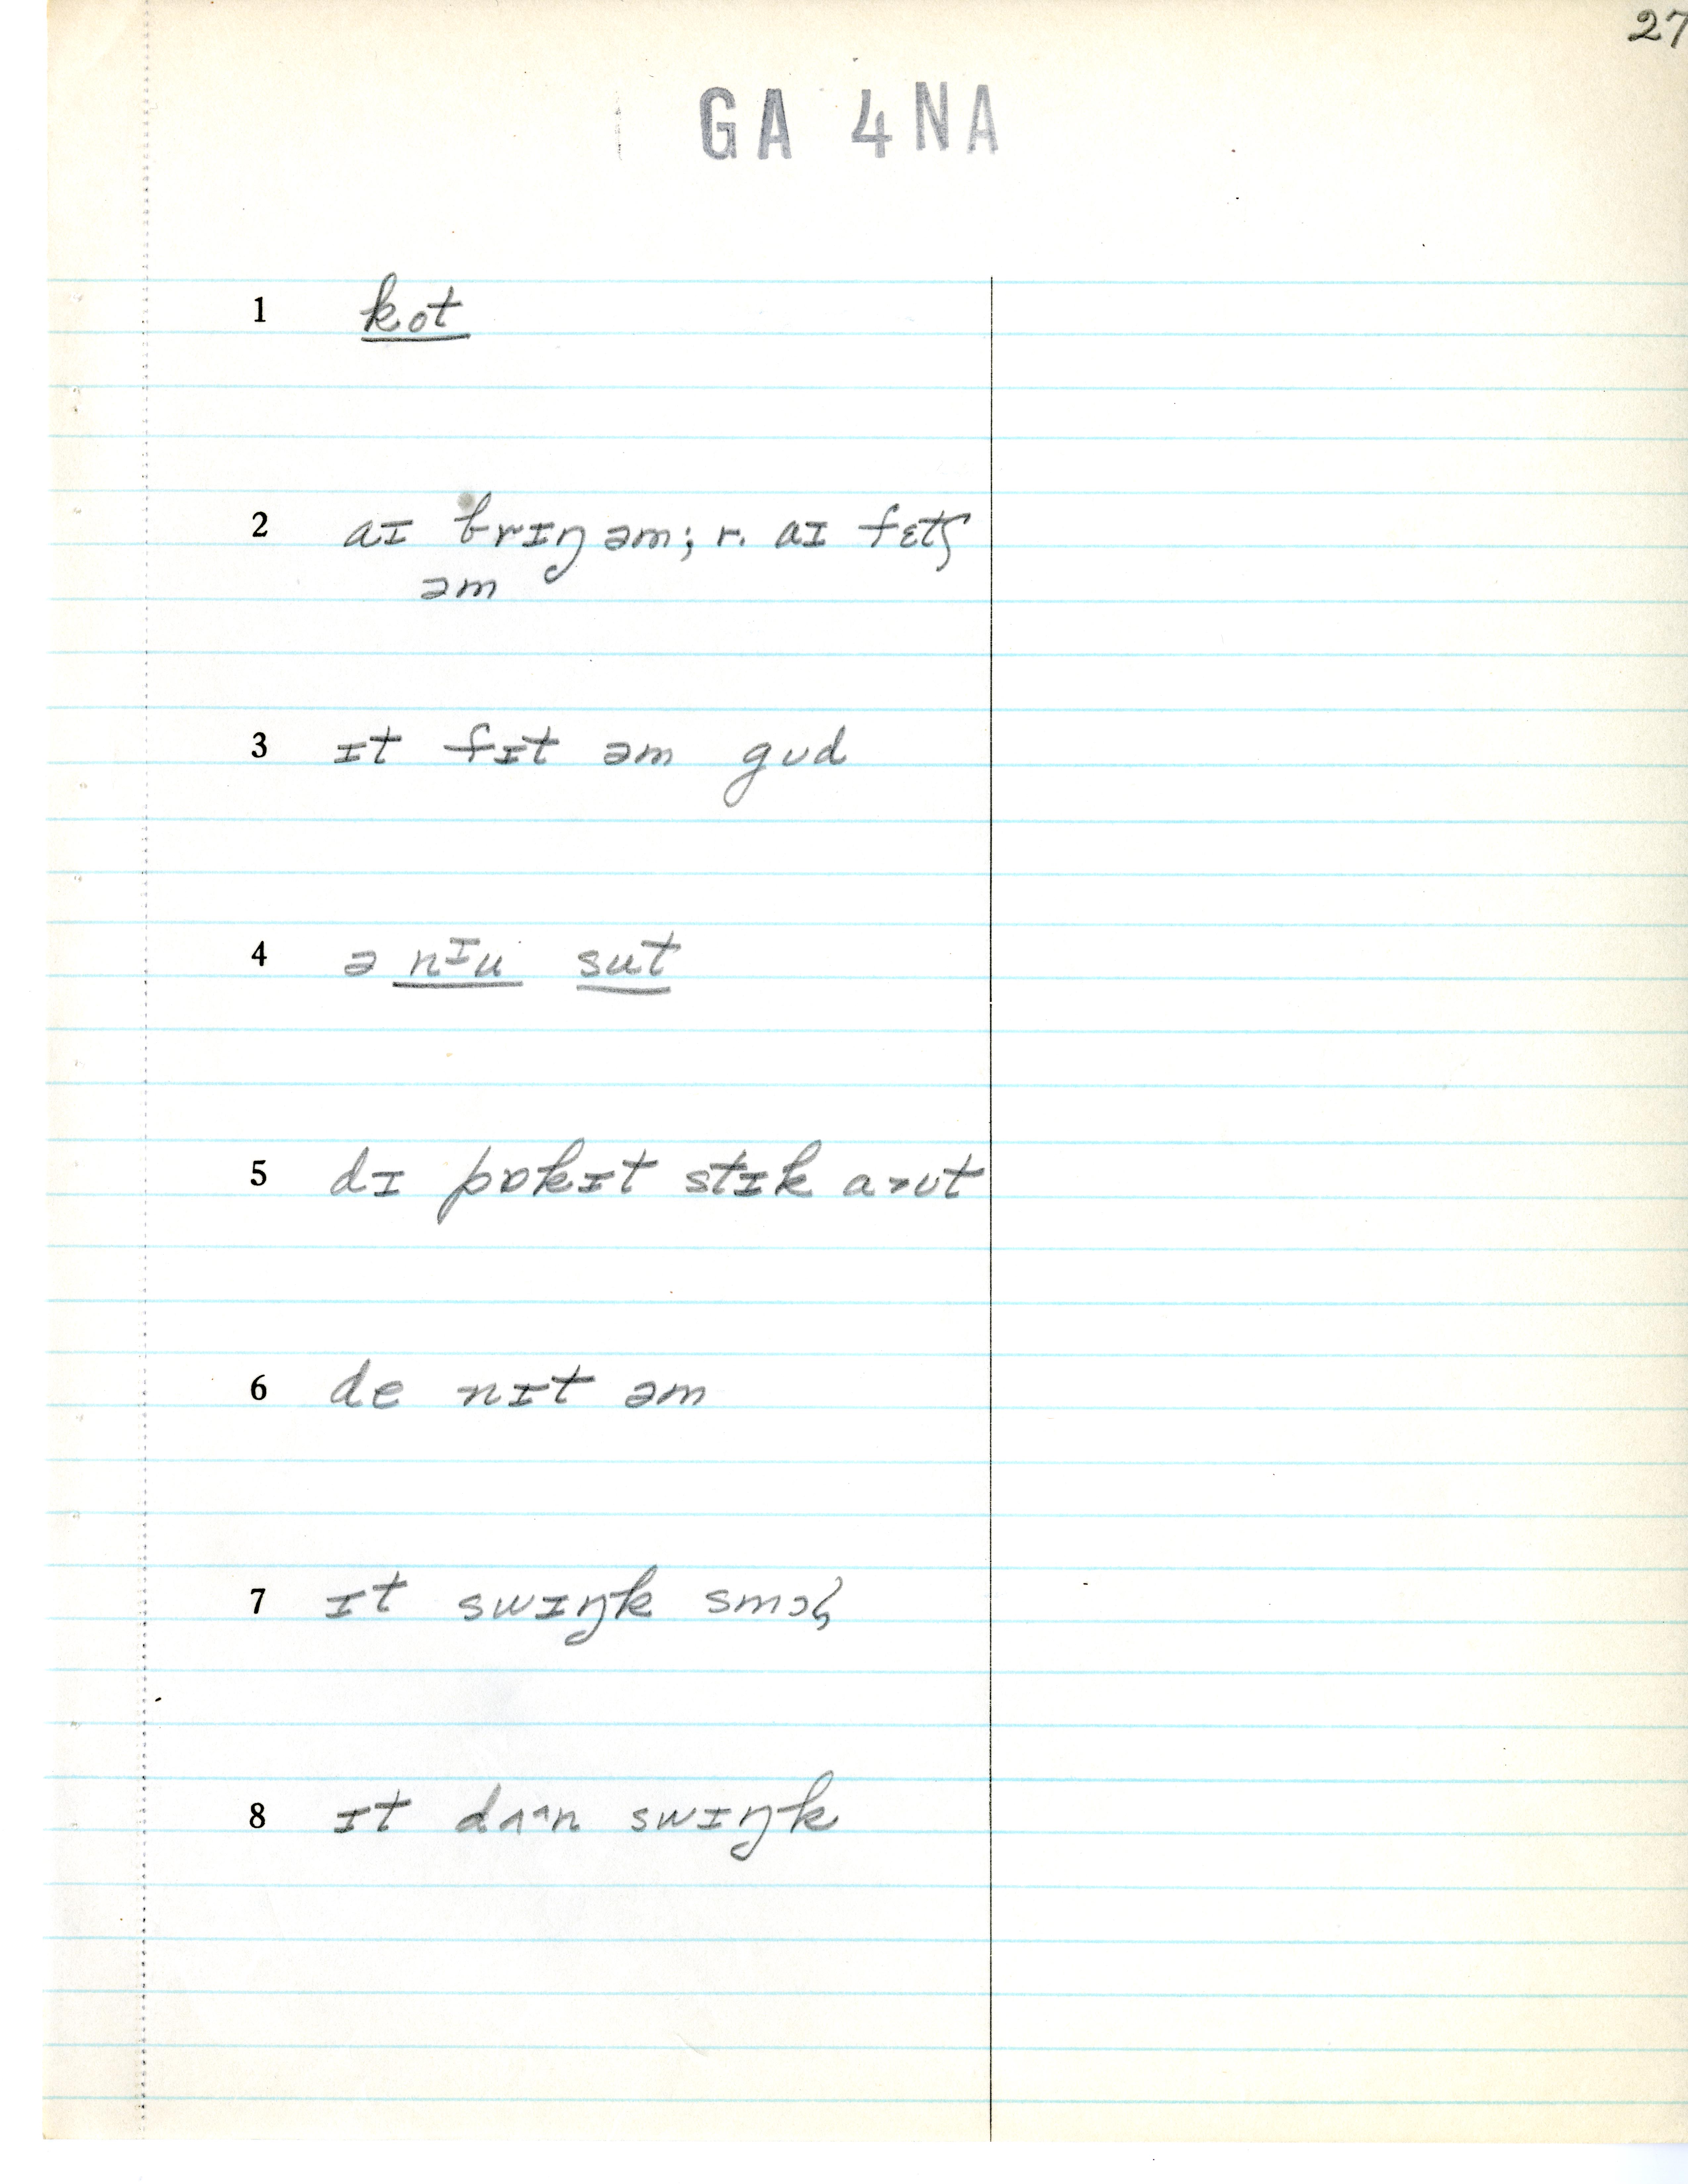 27
GA 4NA
1 kot
2 aɪ brɪŋ əm; r. aɪ fɛtʃ
əm
3 ɪt fɪt əm gʊd
4 ə nɪu sut
5 dɪ pɒkɪt stɪk a˃ʊt
6 de nɪt əm
7 ɪt swɪŋk
8 ɪt swɪŋk